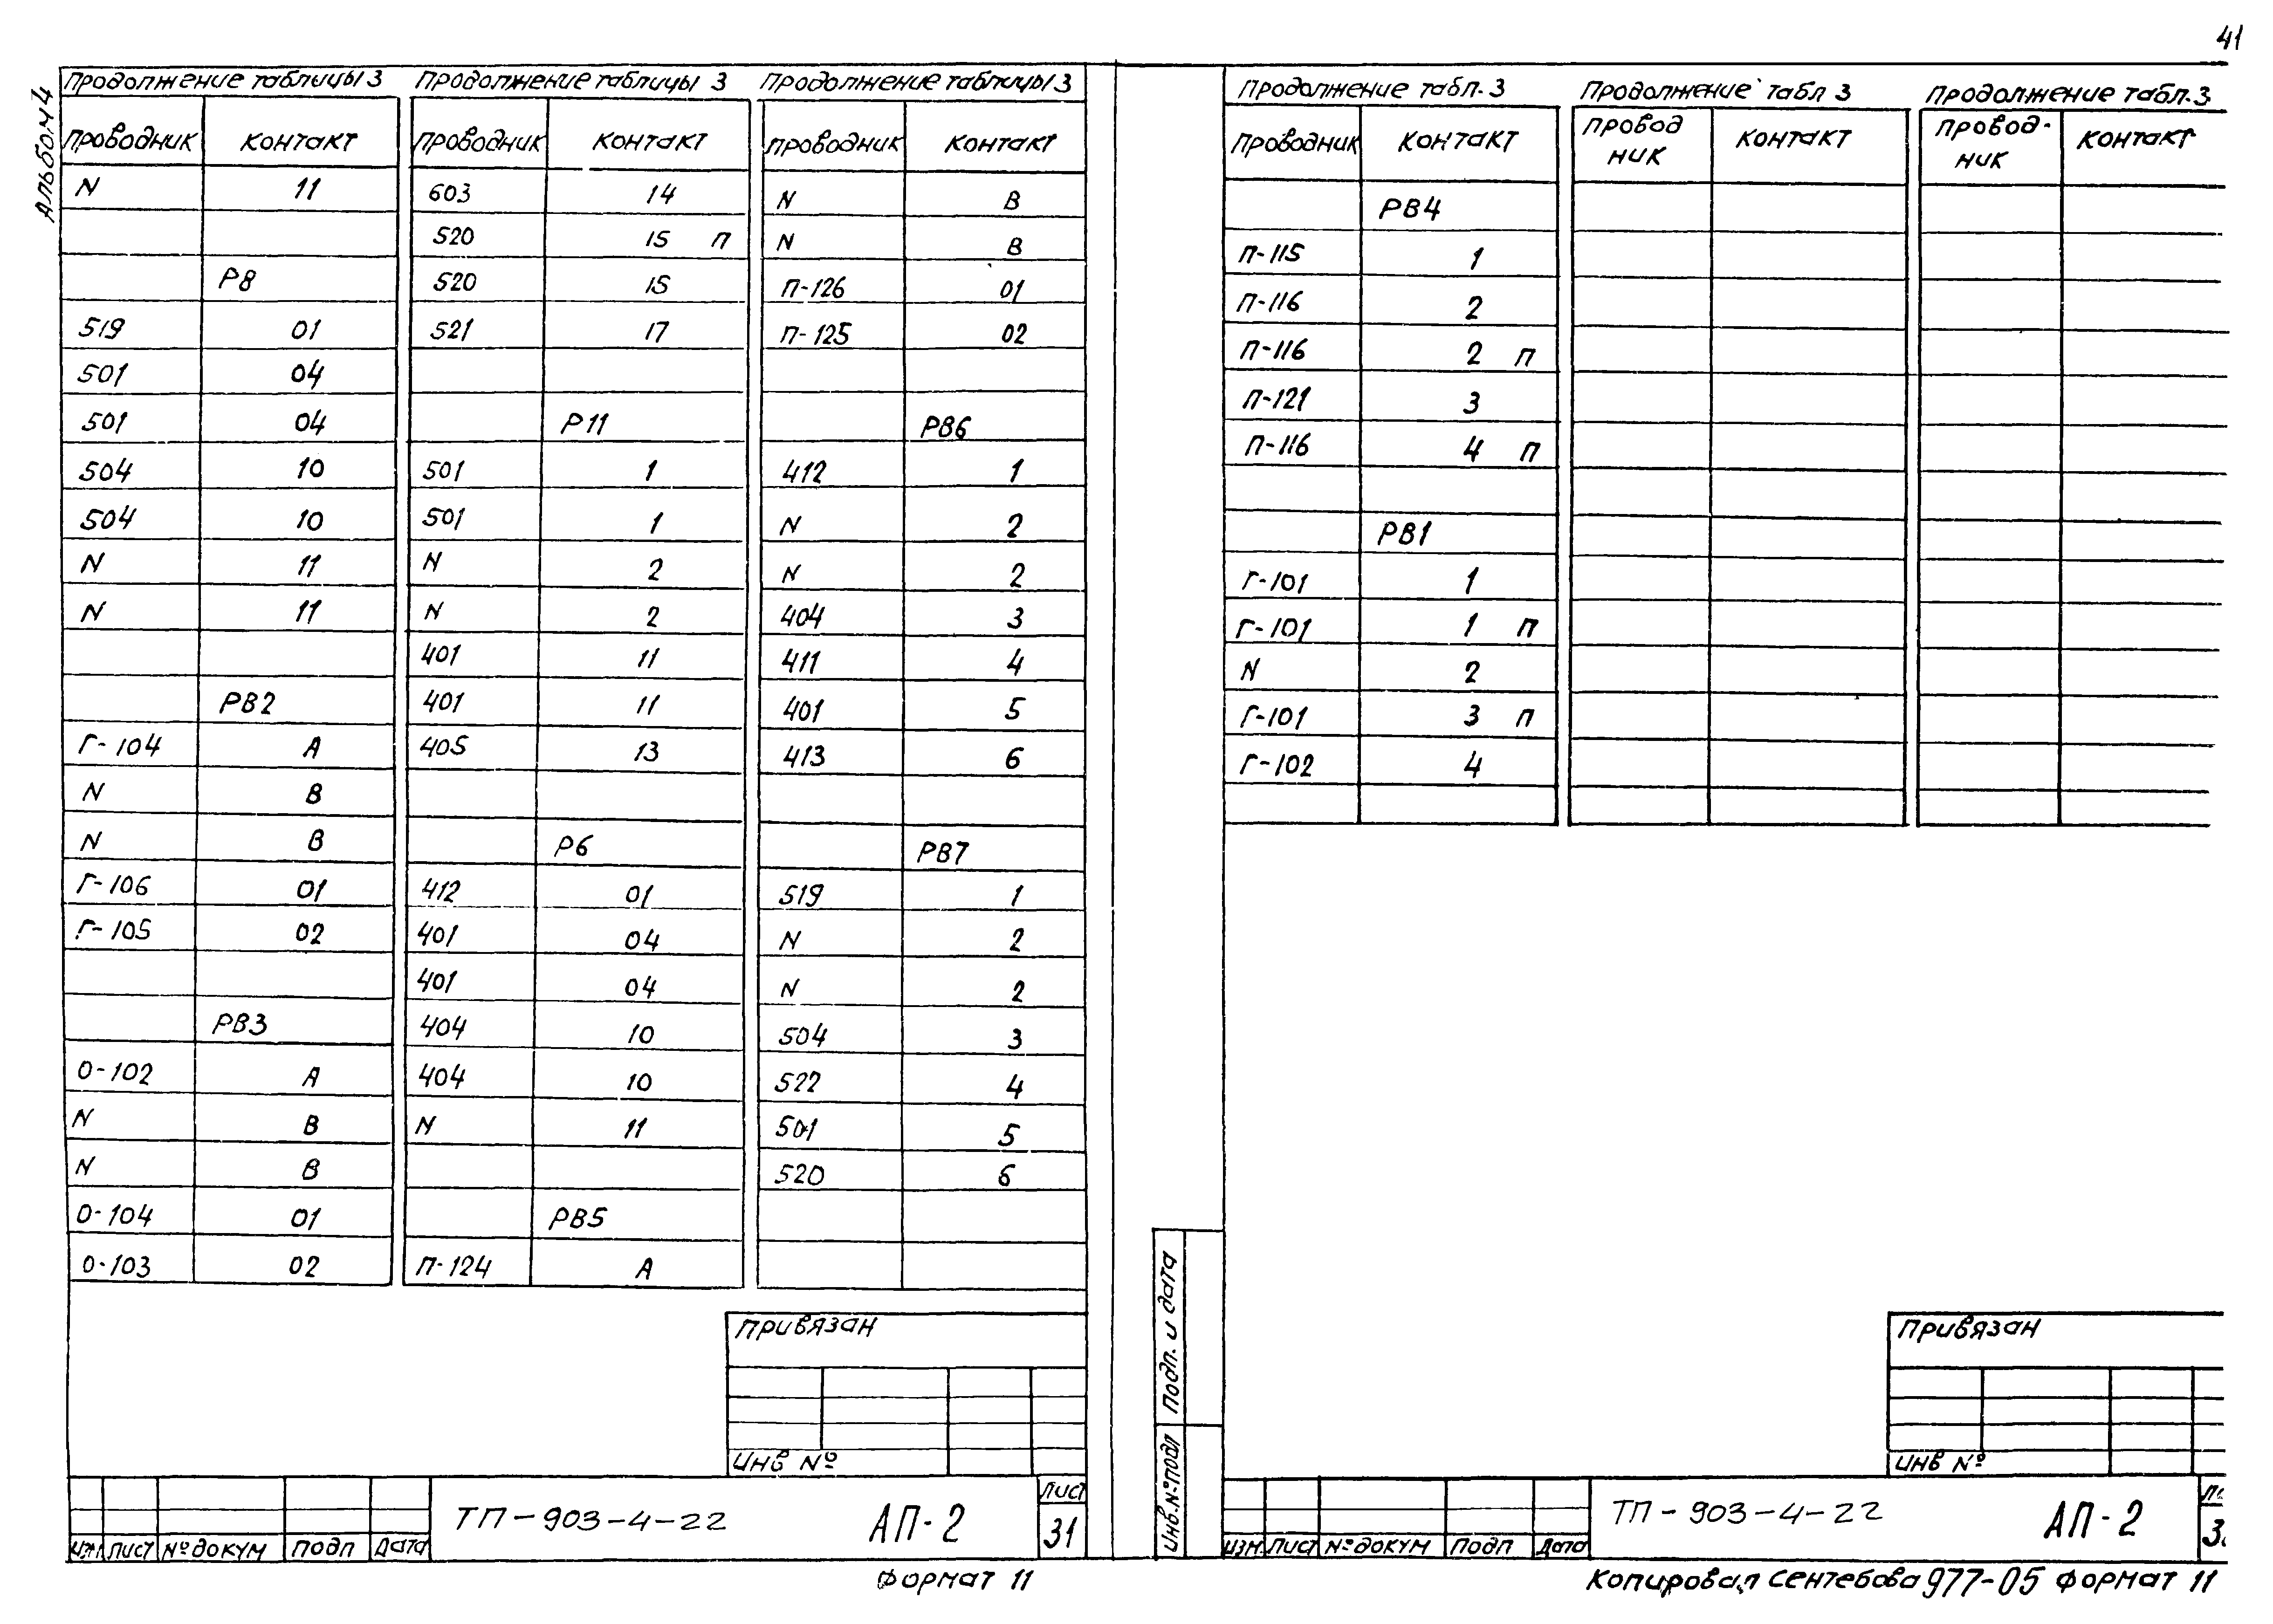 41
Альбом 4
Продолжение таблицы 3
Проводник Контакт
N 11
Р8
519 01
501 04
501 04
504 10
504 10
N 11
N 11
РВ2
Г-104 А
N В
N В
Г-106 01
Г-105 02
РВ3
О-102 А
N В
N В
О-104 01
О-103 02
Продолжение таблицы 3
Проводник Контакт
603 14
520 15 П
520 15
521 17
Р11
501 1
501 1
N 2
N 2
401 11
401 11
405 13
Р6
412 01
401 04
401 04
404 10
404 10
N 11
РВ5
П-124 А
Продолжение таблицы 3
Проводник Контакт
N В
N В
П-126 01
П-125 02
РВ6
412 1
N 2
N 2
404 3
411 4
401 5
413 6
РВ7
519 1
N 2
N 2
504 3
522 4
501 5
520 6
Привязан
Инв №
Изм Лист № докум Подп Дата
ТП-903-4-22 АП-2
Лист
31
Формат 11
Продолжение табл. 3
Проводник Контакт
РВ4
П-115 1
П-116 2
П-116 2 П
П-121 3
П-116 4 П
РВ1
Г-101 1
Г-101 1 П
N 2
Г-101 3 П
Г-102 4
Продолжение табл 3
Провод
ник Контакт
Продолжение табл. 3
Провод-
ник Контакт
Подп. и дата
Инв. № подл
Привязан
Инв №
Изм. Лист № докум Подп Дата
ТП-903-4-22 АП-2
Копировал Сентебова 977-05 Формат 11